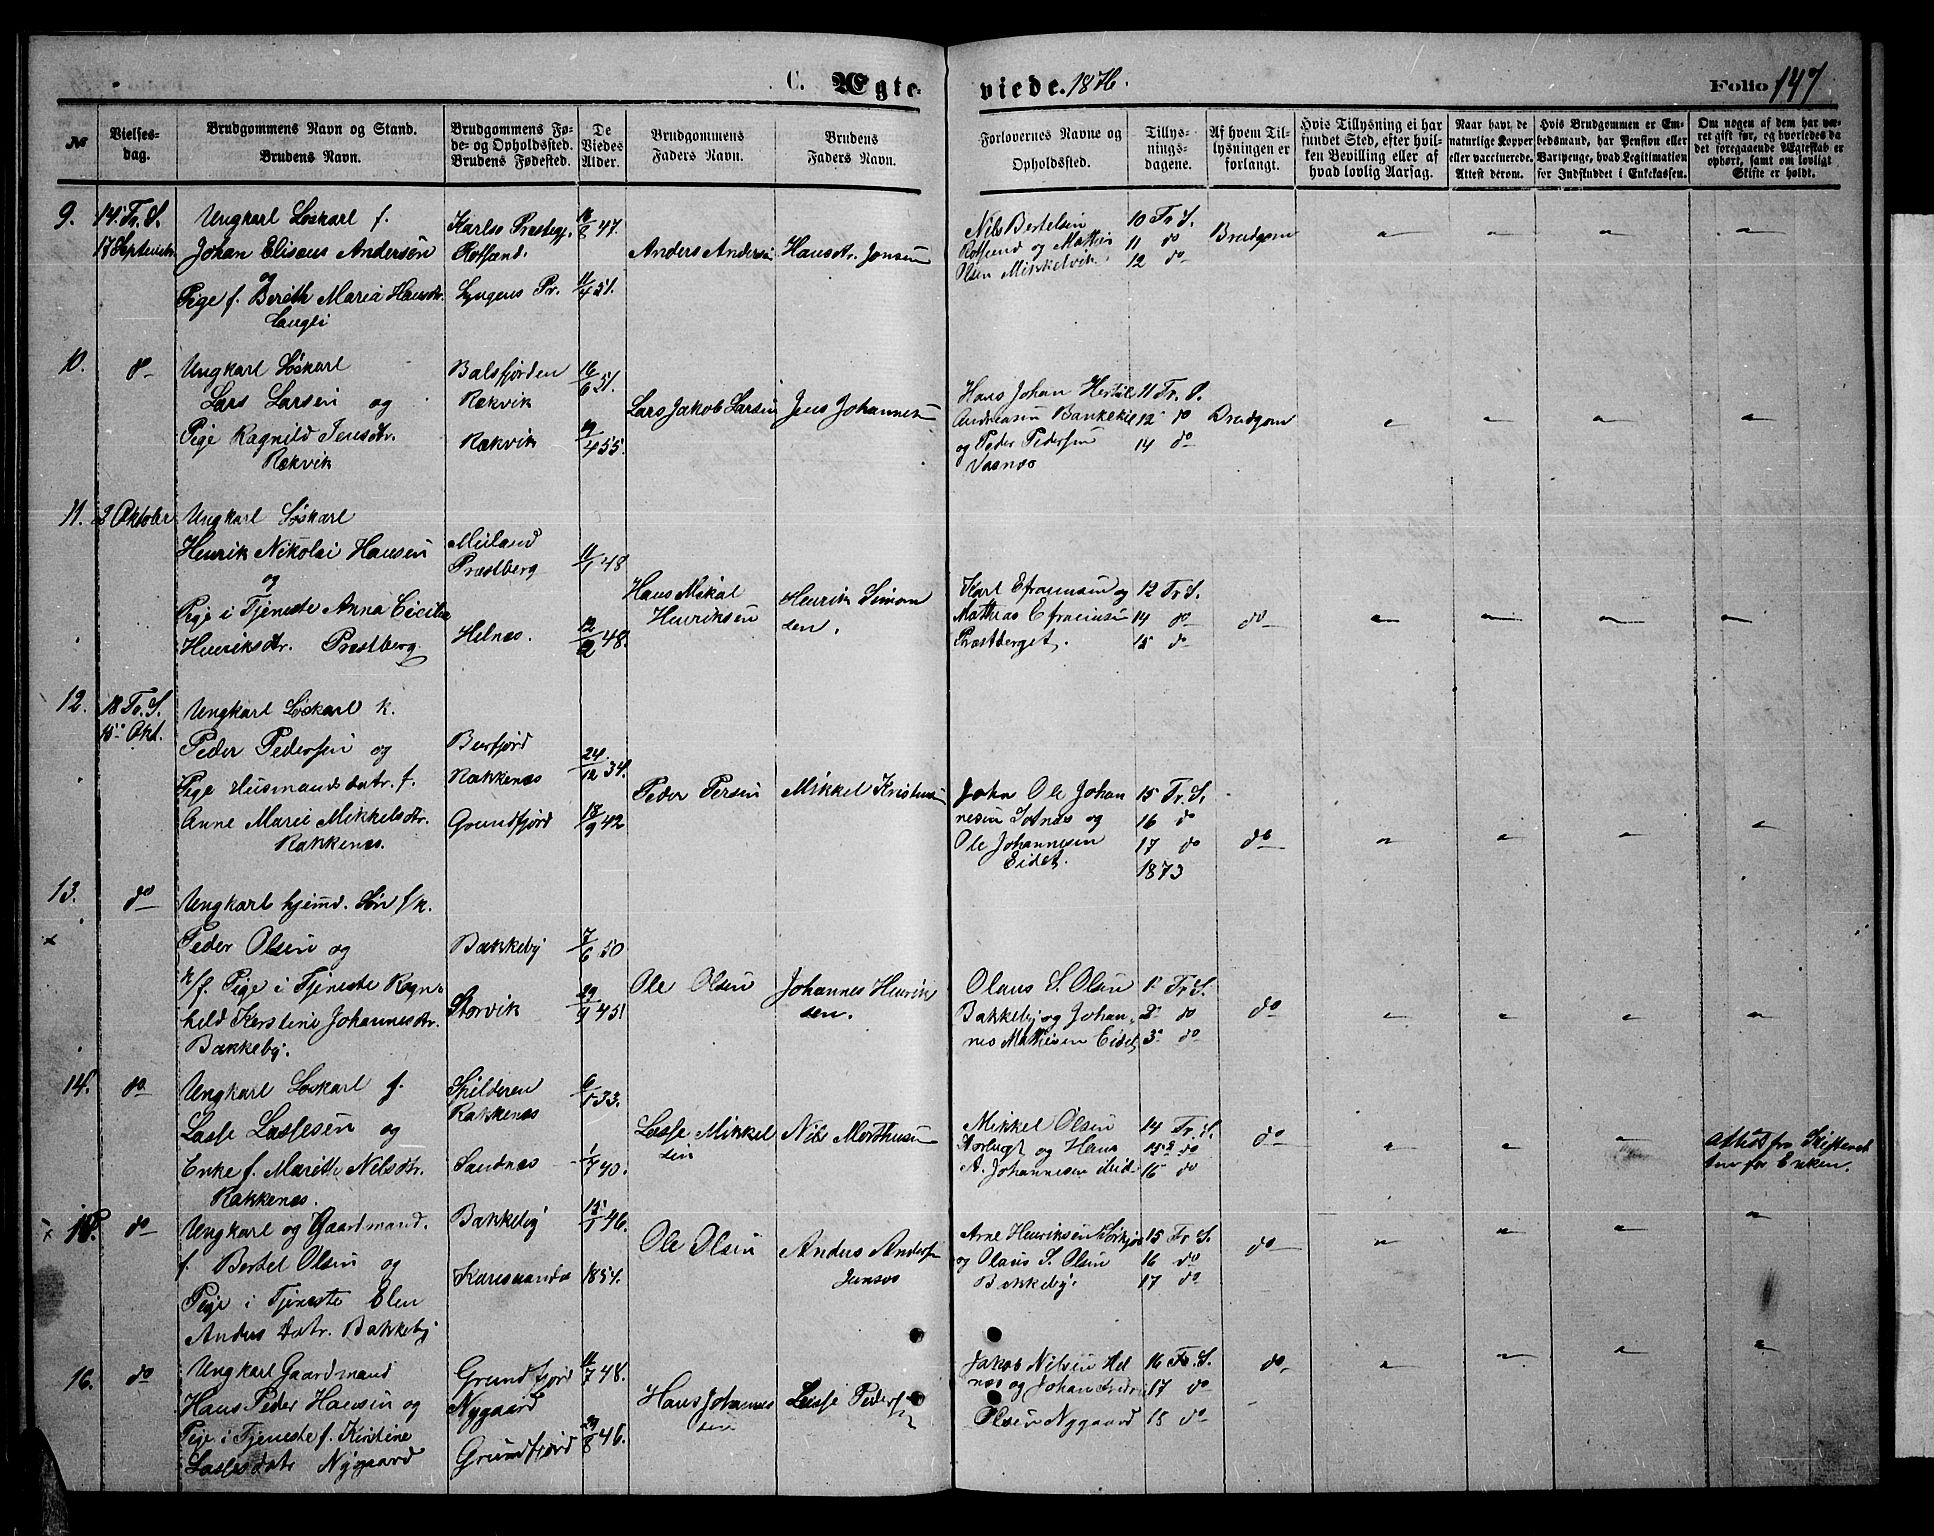 C. Ægteviede. 1876.
Folio 147
№
Vielses-
dag.
Brudgommens Navn og Stand.
Brudens Navn.
Brudgommens Fø-
de- og Opholdssted.
Brudens Fødested.
De
Viedes
Alder.
Brudgommens
Faders Navn.
Brudens
Faders Navn.
Forlovernes Navne og
Opholdssted.
Tillys-
nings-
dagene.
Af hvem Til-
lysningen er
forlangt.
Hvis Tillysning ei har
fundet Sted, efter hvil-
ken Bevilling eller af
hvad lovlig Aarsag.
Naar havt de
naturlige Kopper
eller vaccinerede.
Attest derom.
Hvis Brudgommen er Em-
bedsmand, har Pension eller
Vartpenge, hvad Legitimation
for Indskuddet i Enkekassen.
Om nogen af dem har væ-
ret gift før, og hvorledes da
det foregaaende Ægteskab er
ophørt, samt om lovligt
Skifte er holdt.
9.
14 Tr. S.
17 Septembr
Ungkarl Løskarl f.
Johan Elisæus Andersen
og
Pige f. Berith Maria Hansdtr.
Langli
Karlsø Præstegj.
Rotsund.
Lyngens Pr.
47.
11/4 51.
Anders Andersen
Hans Jonsen
Nils Bertelsen
Rotsund og Mathis
Olsen Mikkelvik
10 Tr. S.
11 do
12 do
Brudgom
10.
do
Ungkarl Løskarl
Lars Larsen og
Pige Ragnild Jensdtr.
Rækvik
Balsfjorden
Rækvik
Rækvik
16/6 51.
55.
Lars Jakob Larsen
Jens Johannesen
Hans Johan
Andreasen
og Peder Pedersen
11 Tr. S.
12 do
14 do
Brudgom
11.
2 Oktober
Ungkarl Løskarl
Henrik Nikolai Hansen
og
Pige i Tjeneste Anna Cecilia
Henriksdtr. Præstberg
Meiland
Præstberg
Helnes.
11/1 48
12/2 48.
Hans Mikal
Henriksen
Henrik Simon
sen.
Karl Efraimsen og
Mathias Efraimsen
Præstberget.
12 Tr. S.
14 do
15 do
do
12.
18 Tr. S.
15 Okt.
Ungkarl Løskarl k.
Peder Pedersen og
Pige Husmandsdatr. f.
Anne Marie Mikkelsdtr.
Rakkenæs.
Burfjord
Rakkenæs
Grundfjord
24/12 34.
18/9 42
Peder Persen
Mikkel Kristensen
John Ole Johan
nesen og
Ole Johannesen
Eidet.
15 Tr. S.
16 do
17 do
1873
do
13.
do
Ungkarl hjemd. Søn f/k.
Peder Olsen og
k/f. Pige i Tjeneste Ragn-
hild Kerstine Johannesdtr.
Bakkeby.
Bakkeby
Storvik
7/6 50
45
Ole Olsen
Johannes Henrik
sen.
Olaus S. Olsen
Bakkeby og Johan-
nes Mathisen Eidet
1 Tr. S.
2 do
3 do
do
14.
do
Ungkarl Løskarl f.
Lasse Lassesen og
Enke f. Marith Nilsdtr.
Rakkenæs.
Spilderen
Rakkenæs
Sandnæs
6/1 33.
1/7 40.
Lasse Mikkel
sen
Nils Morthesen
Mikkel Olsen
Storbugt og Hans
A. Johannesen ibid
14 Tr. S.
15 do
16 do
do
Attest fra Skifteret
ten for Enken.
15.
do
Ungkarl og Gaardmand.
f. Bertel Olsen og
Pige i Tjeneste Elen
Anders Datr. Bakkeby
Bakkeby
15/1 46.
1854.
Ole Olsen
Anders Anders
Arne Henriksen
og Olaus S. Olsen
Bakkeby.
15 Tr. S.
16 do
17 do
do
16.
do
Ungkarl Gaardmand
Hans Peder Hansen og
Pige i Tjeneste f. Kirstine
Lassesdatr Nygaard
Grundfjord
Nygaard
Grundfjord
11/7 48.
29/8 46.
Hans Johannes
sen
Lasse Peders
Jakob Nilsen Hel
næs og Johan
Olsen Nygaard
16 Tr. S.
17 do
18 do
do